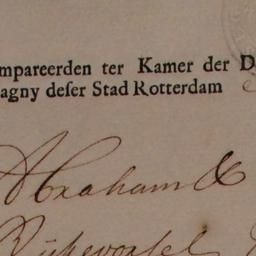 mpareerden ter Kamer der D
agny deſer Stad Rotterdam
Abraham &